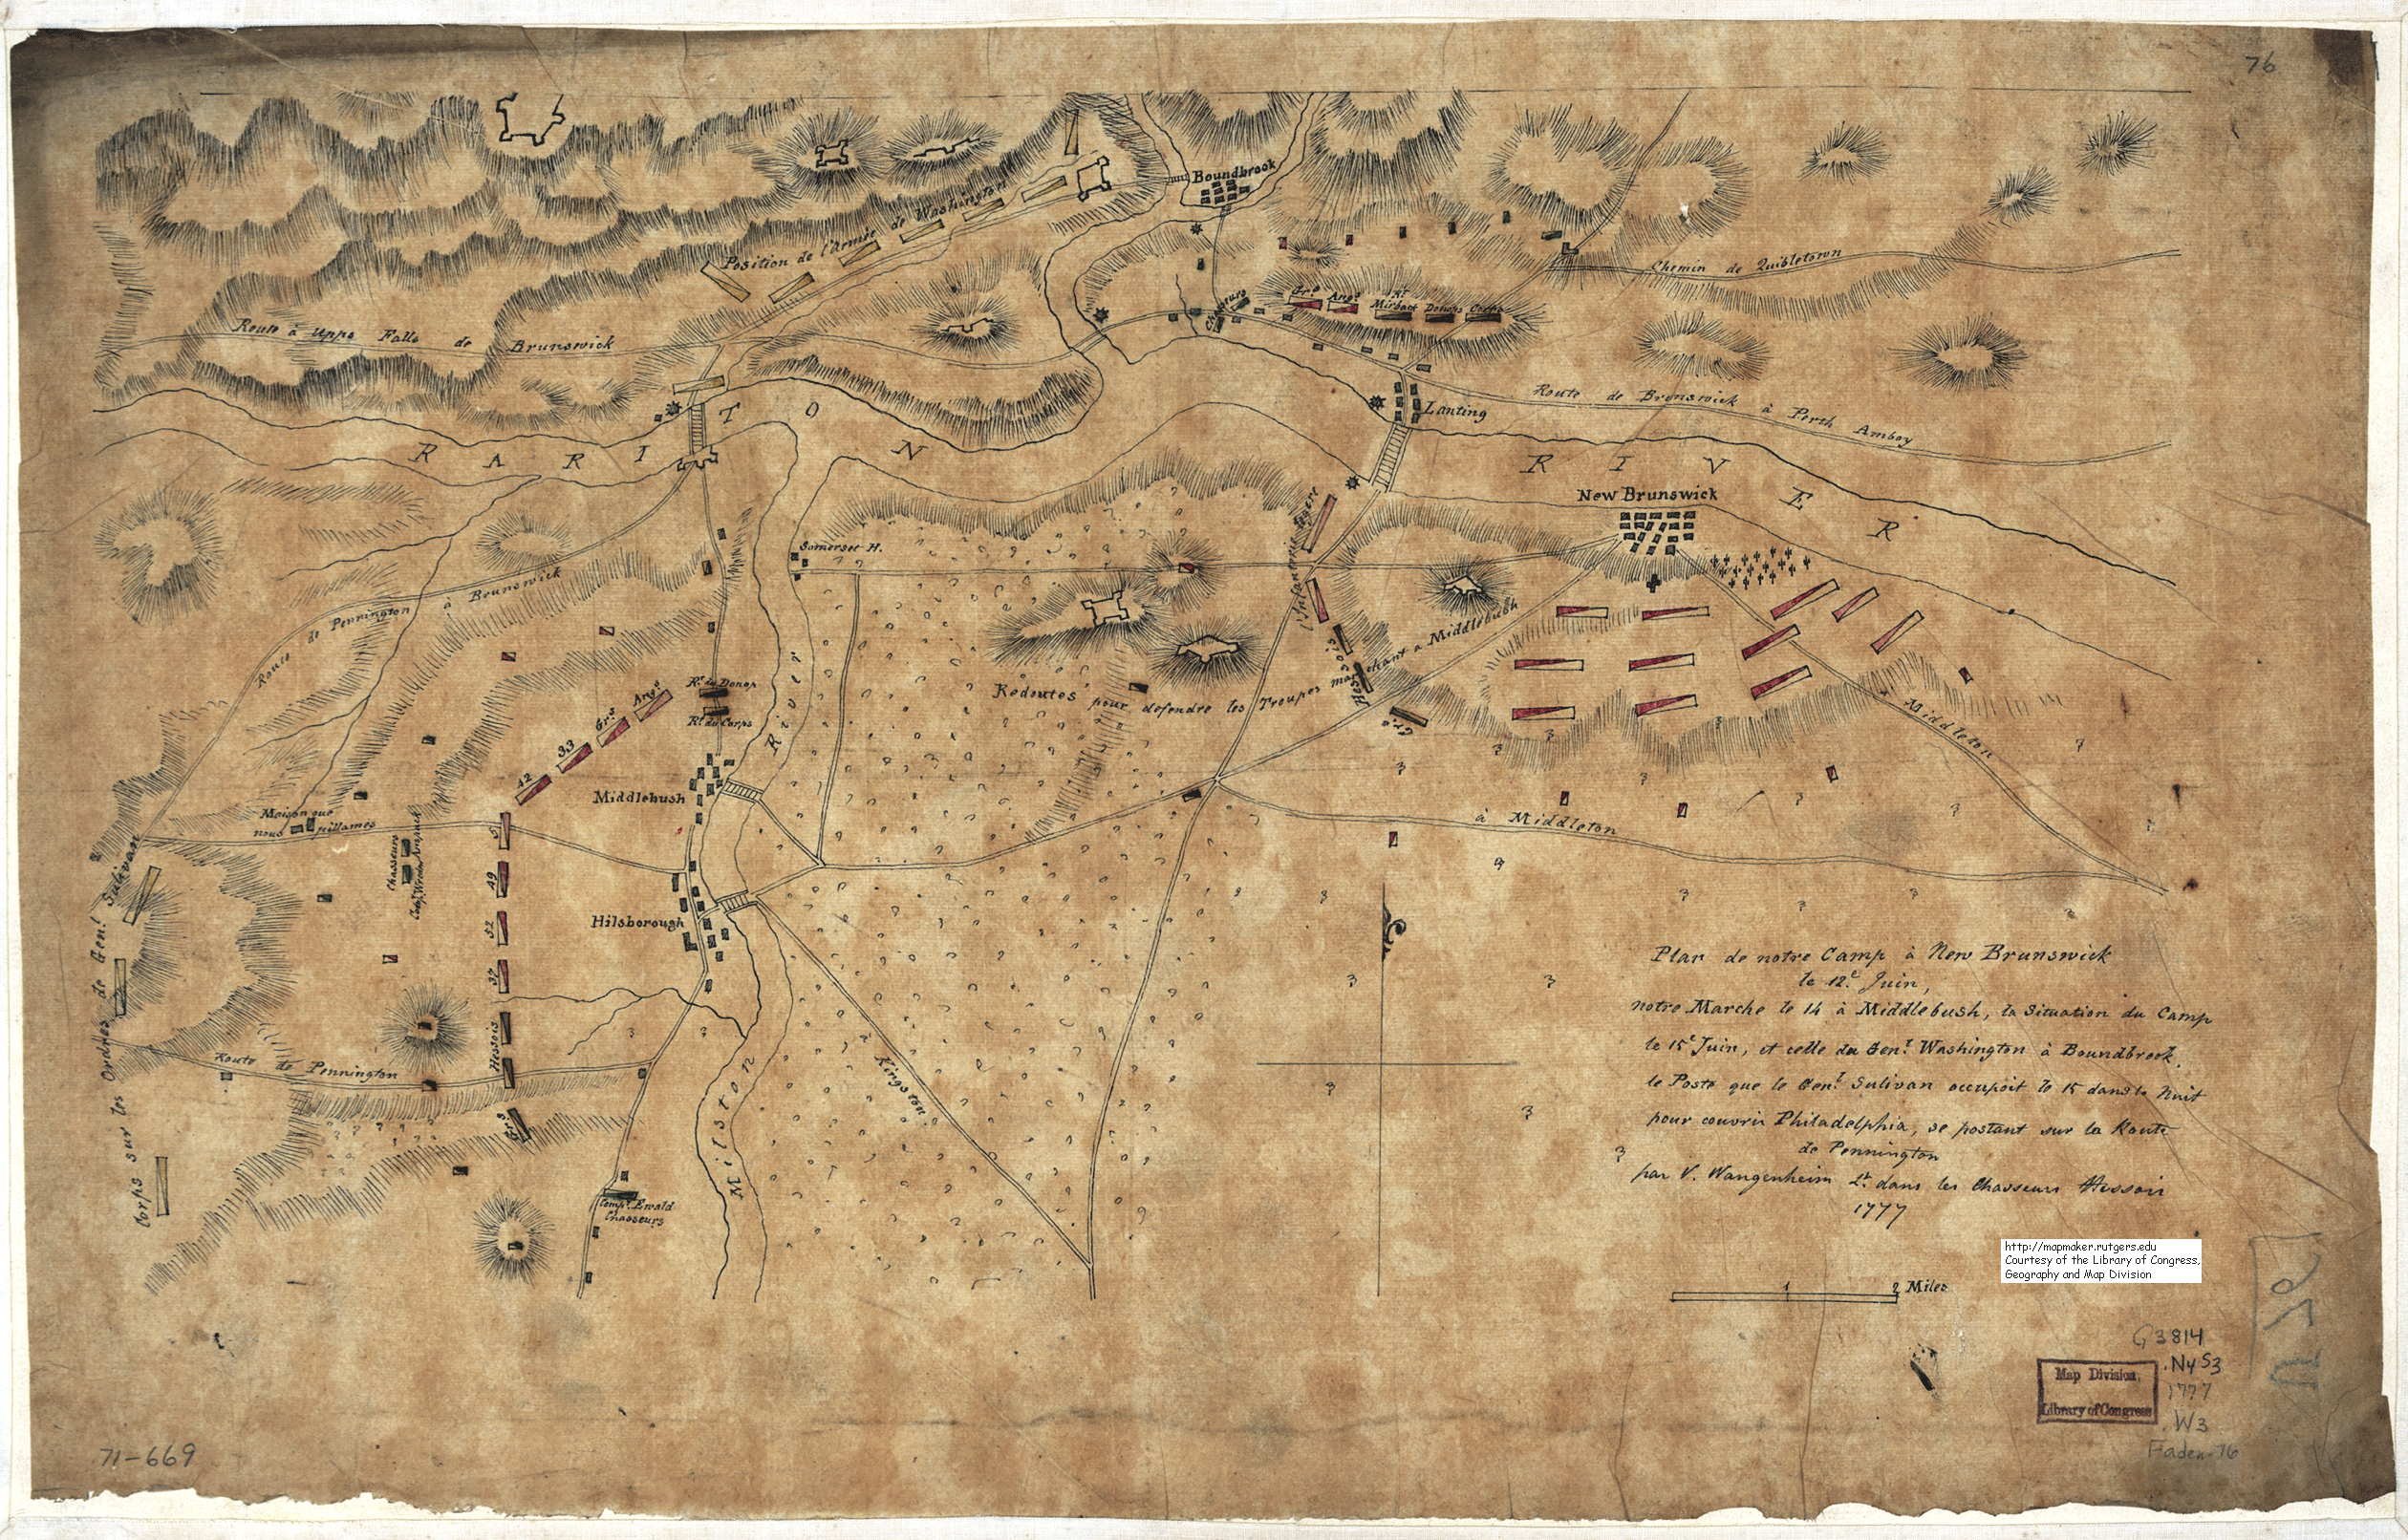 76
Boundbrook
Position de l'Armée de Washington
Chemin de Quibletown
Grs Angs Rt Mirbach Donops Corps
Chasseurs
Route à Upps Falls de Brunswick
Route de Brunswick à Perth Amboy
Lanting
RARITON RIVER
New Brunswick
Somerset H.
l'Infanterie legere
Route de Pennington à Brunswick
Redoutes pour defendre les Troupes marchant a Middlebush
Hessois
Grs
Rt. de Donop
Rt. du Corps
Angs
Grs
33
42
Middlebush
River
Middleton
à Middleton
Maison que
nous pillames
Chasseurs
5
49
52
37
Hessois
Grs
Hilsborough
Corps sur les Ordres de Genl. Sulivan
Route de Pennington
Kingston
Milston
Compe. Ewald
Chasseurs
Plan de notre Camp à New Brunswick
le 12e Juin,
notre Marche le 14 à Middlebush, la Situation du Camp
le 15e Juin, et celle du Genl. Washington à Boundbrook,
le Poste que le Genl. Sulivan occupoit le 15 dans la Nuit
pour couvrir Philadelphia, se postant sur la Route
de Pennington
par V. Wangenheim Lt. dans les Chasseurs Hessois
1777
http://mapmaker.rutgers.edu
Courtesy of the Library of Congress,
Geography and Map Division
1 2 Miles
G3814
.N4S3
1777
.W3
Faden-76
Map Division,
Library of Congress
71-669